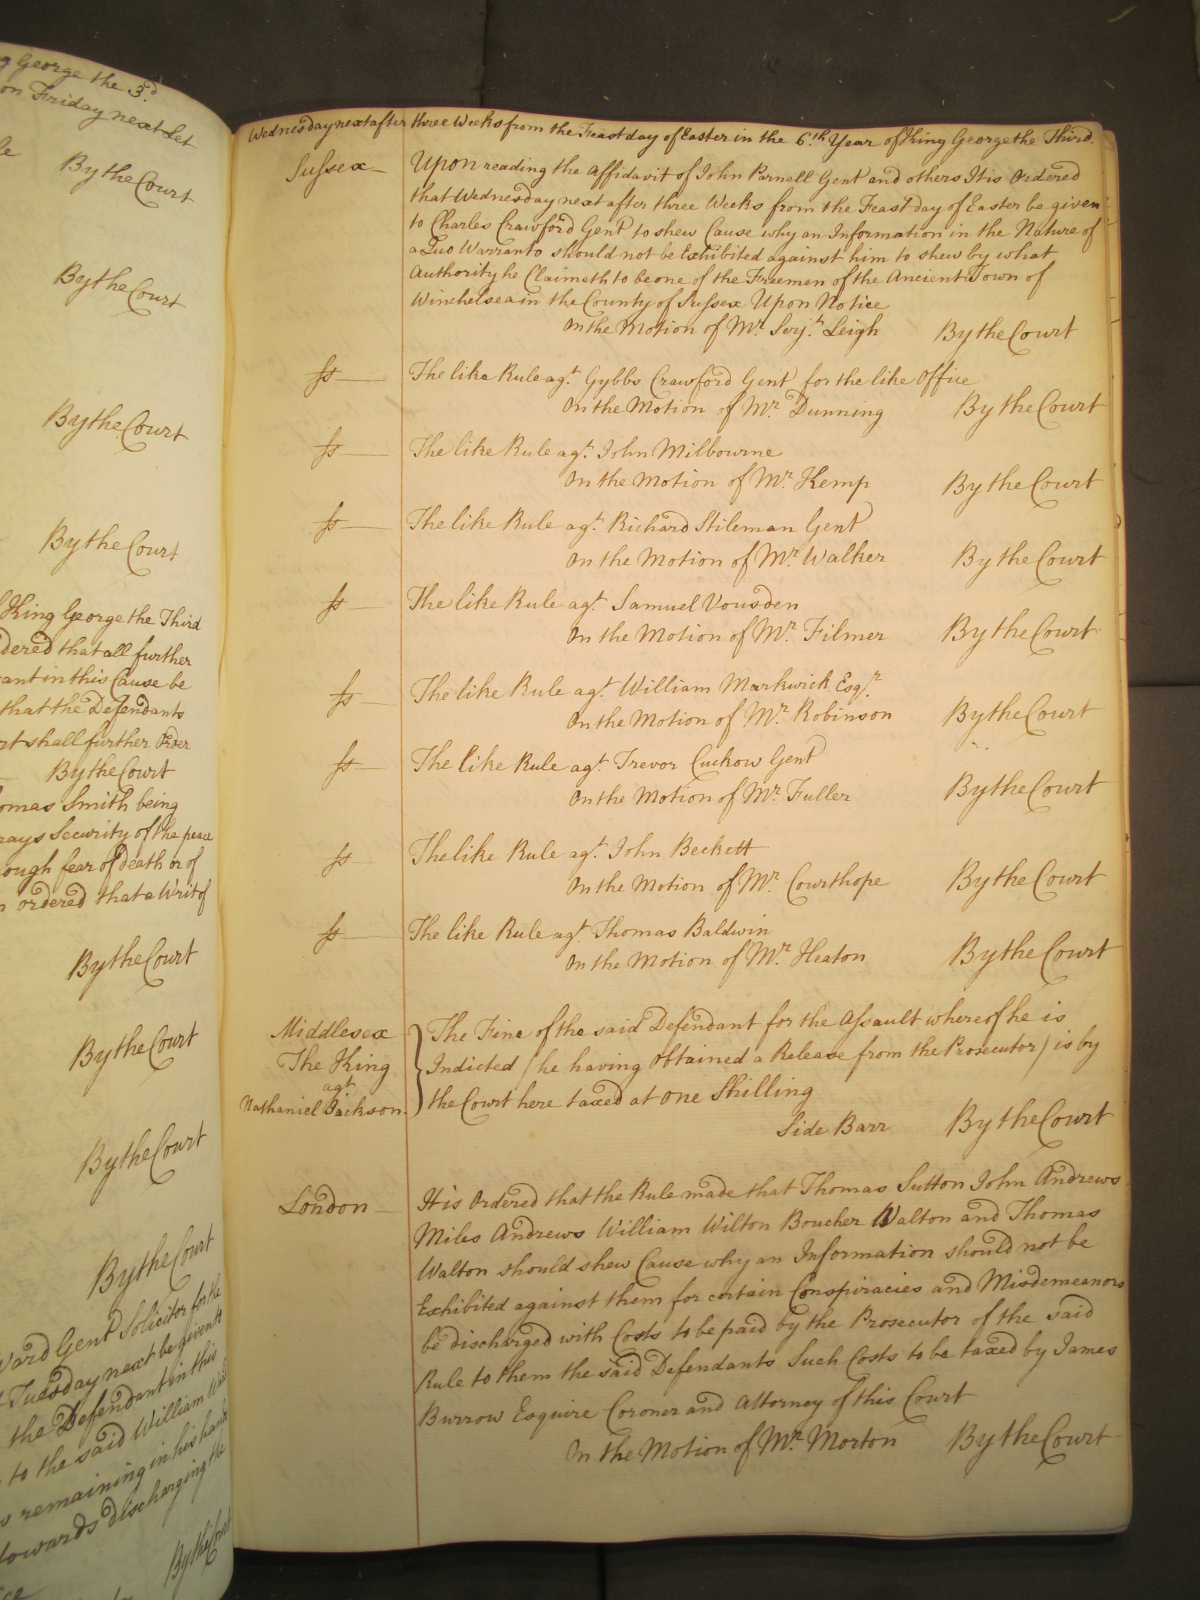 g George the 3.d
on Friday next Let
By the Court
By the Court
By the Court
By the Court
King George the Third
dered that all further
ant in this Cause be
that the Defendants
rt shall further Order
By the Court
omas Smith being
rays Security of the peace
ough fear of death or of
ordered that a Writ of
By the Court
By the Court
By the Court
By the Court
ward Gent Solicitor for the
Tuesday next be given to
the Defendant in this
to the said William
s remaining in his hands
towards discharging the
By the Court
Wednesday next after three Weeks from the Feast day of Easter in the 6.th Year of King George the Third.
Sussex Upon reading the Affidavit of John Parnell Gent and others It is Ordered
that Wednesday next after three Weeks from the Feast day of Easter be given
to Charles Crawford Gent to shew Cause why an Information in the Nature of
a Quo Warranto should not be Exhibited against him to shew by what
Authority he Claimeth to be one of the Freemen of the Ancient Town of
Winchelsea in the County of Sussex Upon Notice
On the Motion of Mr. Serj.t Leigh By the Court
ss The like Rule ag.t Gybbs Crawford Gent for the like Office
On the Motion of Mr. Dunning By the Court
ss The like Rule ag.t John Milbourne
On the Motion of Mr. Kemp By the Court
ss The like Rule ag.t Richard Stileman Gent
On the Motion of Mr. Walker By the Court
ss The like Rule ag.t Samuel Vousden
On the Motion of Mr. Filmer By the Court
ss The like Rule ag.t William Markwick Esq.r
On the Motion of Mr. Robinson By the Court
ss The like Rule ag.t Trevor Cuckow Gent
On the Motion of Mr. Fuller By the Court
ss The like Rule ag.t John Beckett
On the Motion of Mr. Courthope By the Court
ss The like Rule ag.t Thomas Baldwin
On the Motion of Mr. Heaton By the Court
Middlesex
The King
agt
Nathaniel Jackson
The Fine of the said Defendant for the Assault whereof he is
Indicted (he having Obtained a Release from the Prosecutor) is by
the Court here taxed at One Shilling
Side Barr By the Court
London It is Ordered that the Rule made that Thomas Sutton John Andrews
Miles Andrews William Wilton Boucher Walton and Thomas
Walton should shew Cause why an Information should not be
Exhibited against them for certain Conspiracies and Misdemeanors
be discharged with Costs to be paid by the Prosecutor of the said
Rule to them the said Defendants Such Costs to be taxed by James
Burrow Esquire Coroner and Attorney of this Court
On the Motion of Mr. Morton By the Court